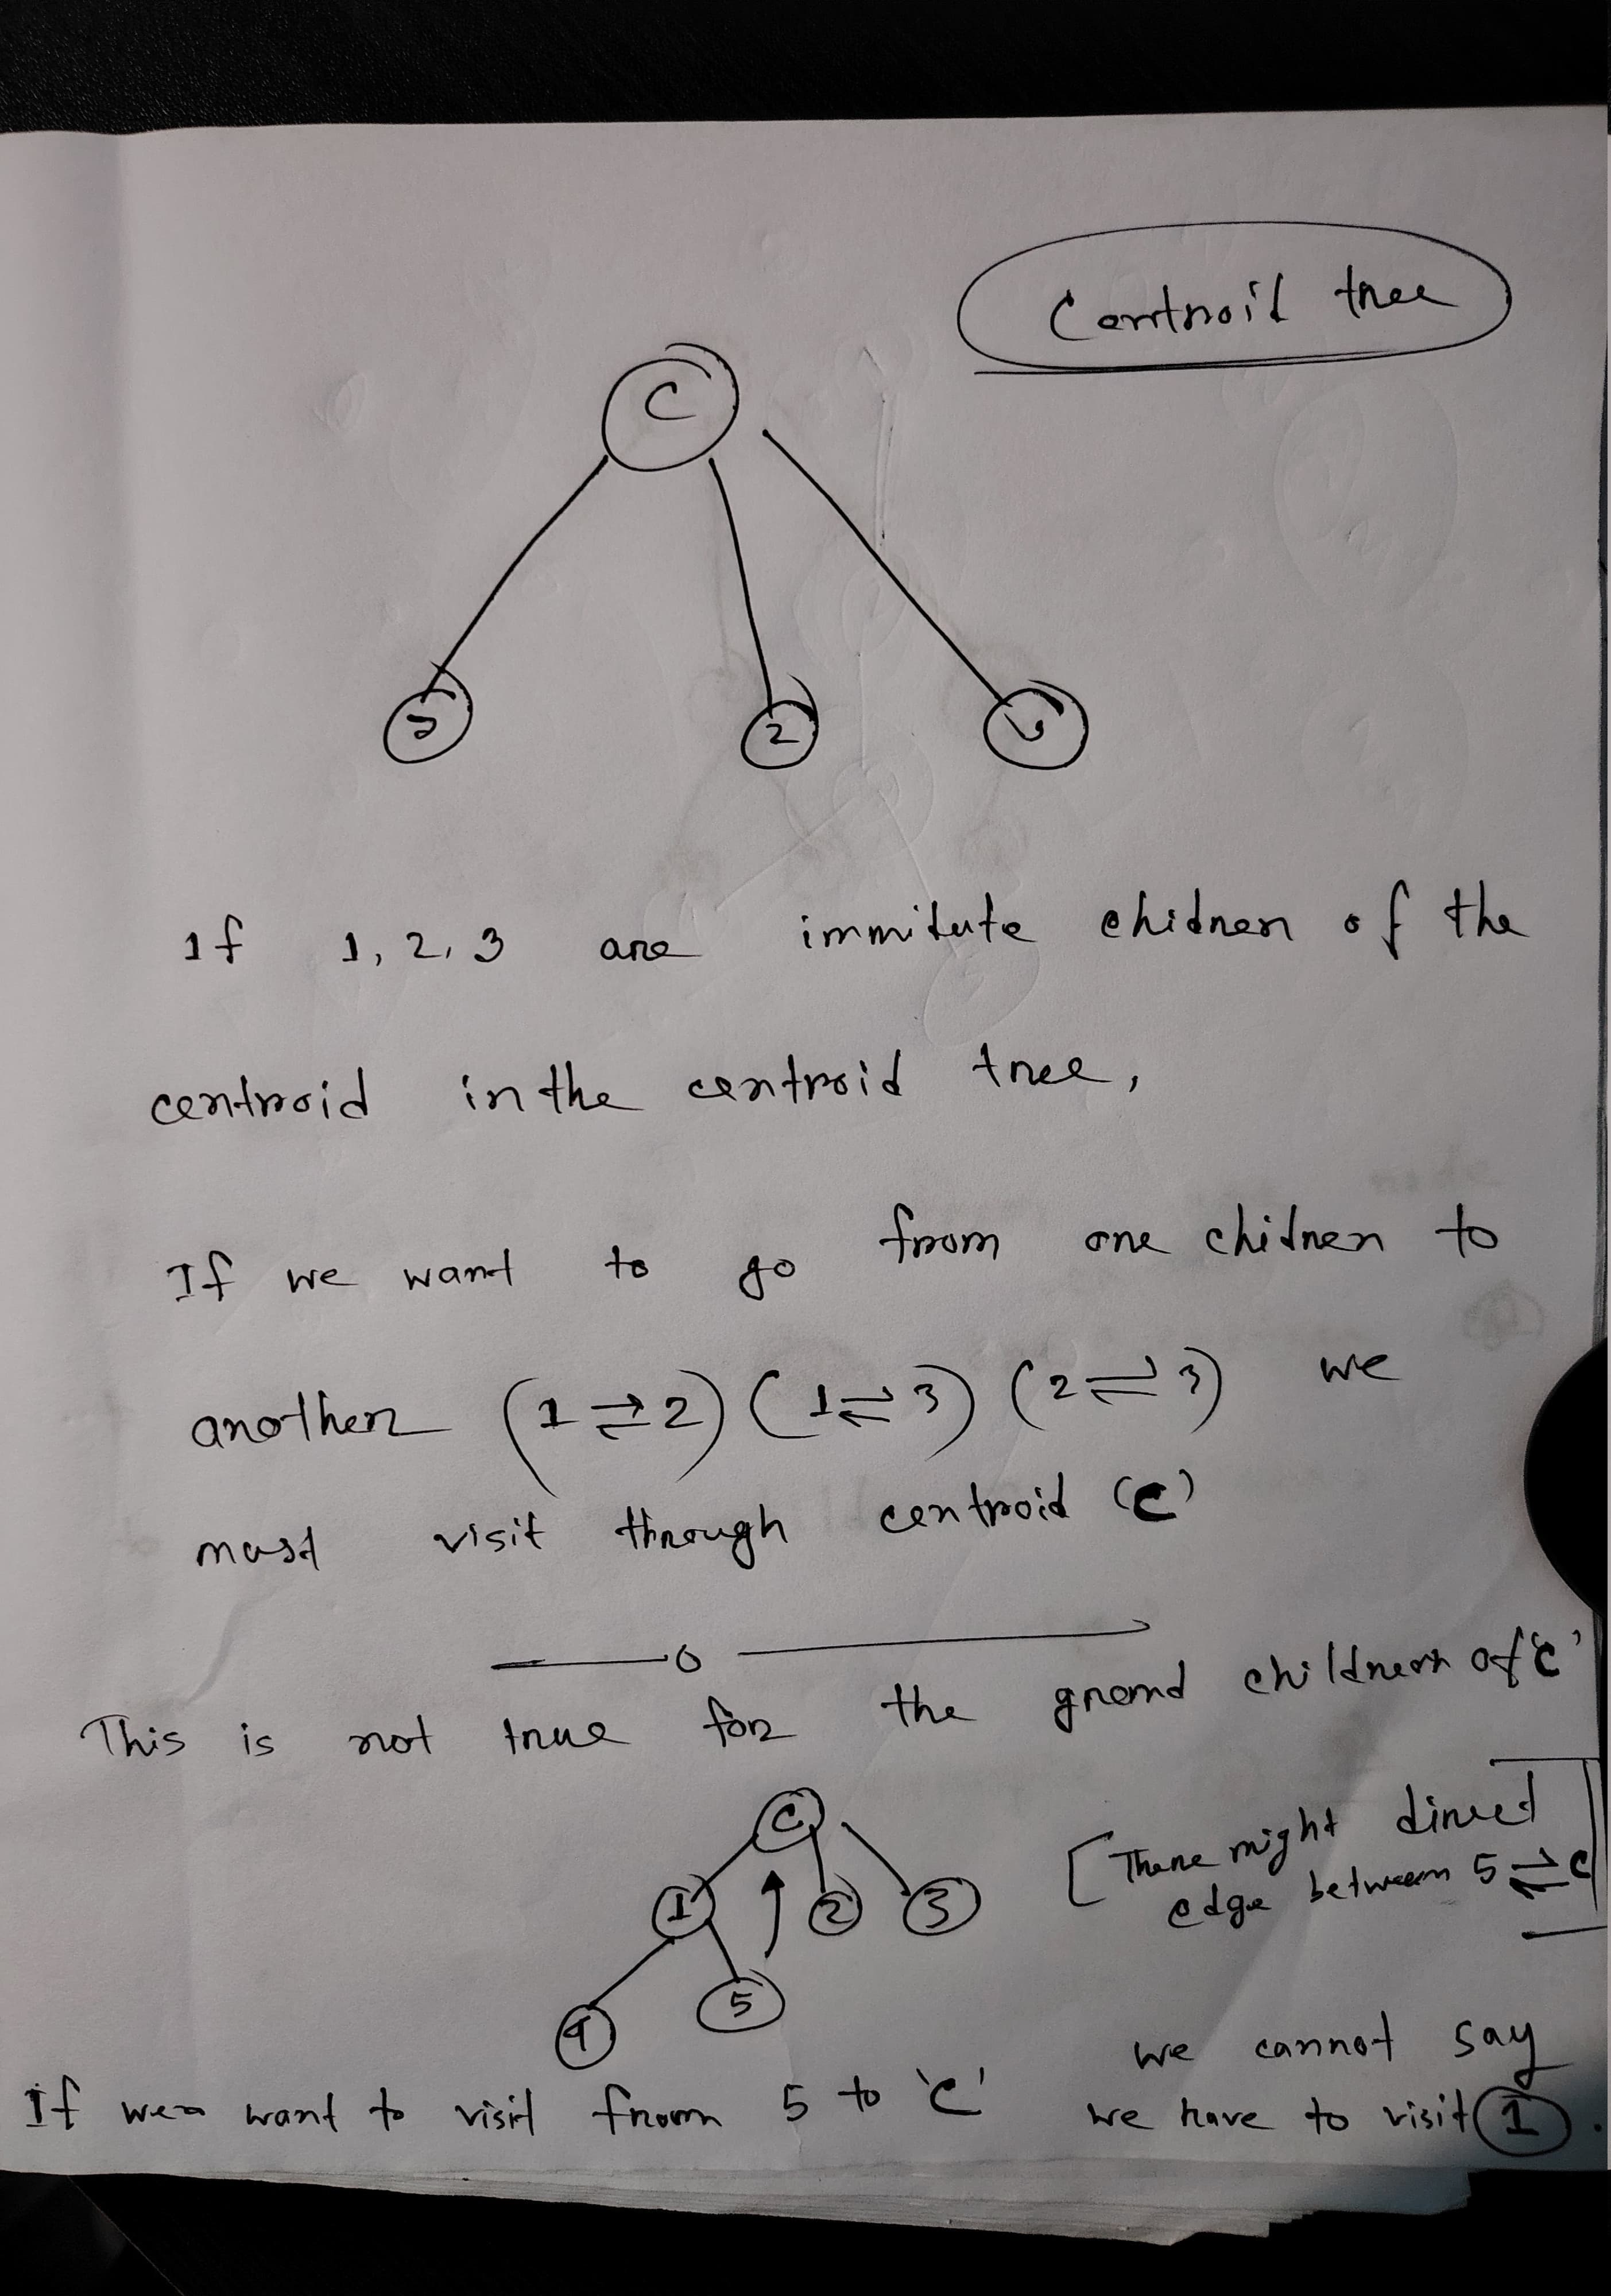 Centroid tree
C
2
If 1, 2, 3 are immitute chidren of the
centroid in the centroid tree,
If we want to go from one chidren to
another (1 ⇄ 2) (1 ⇄ 3) (2 ⇄ 3) we
must visit through centroid 'C'
This is not true for the grand children of 'C'
C
[There might direct
edge between 5 ⇄ C]
1 2 3
4 5
we cannot say
If we want to visit from 5 to 'C' we have to visit 1.